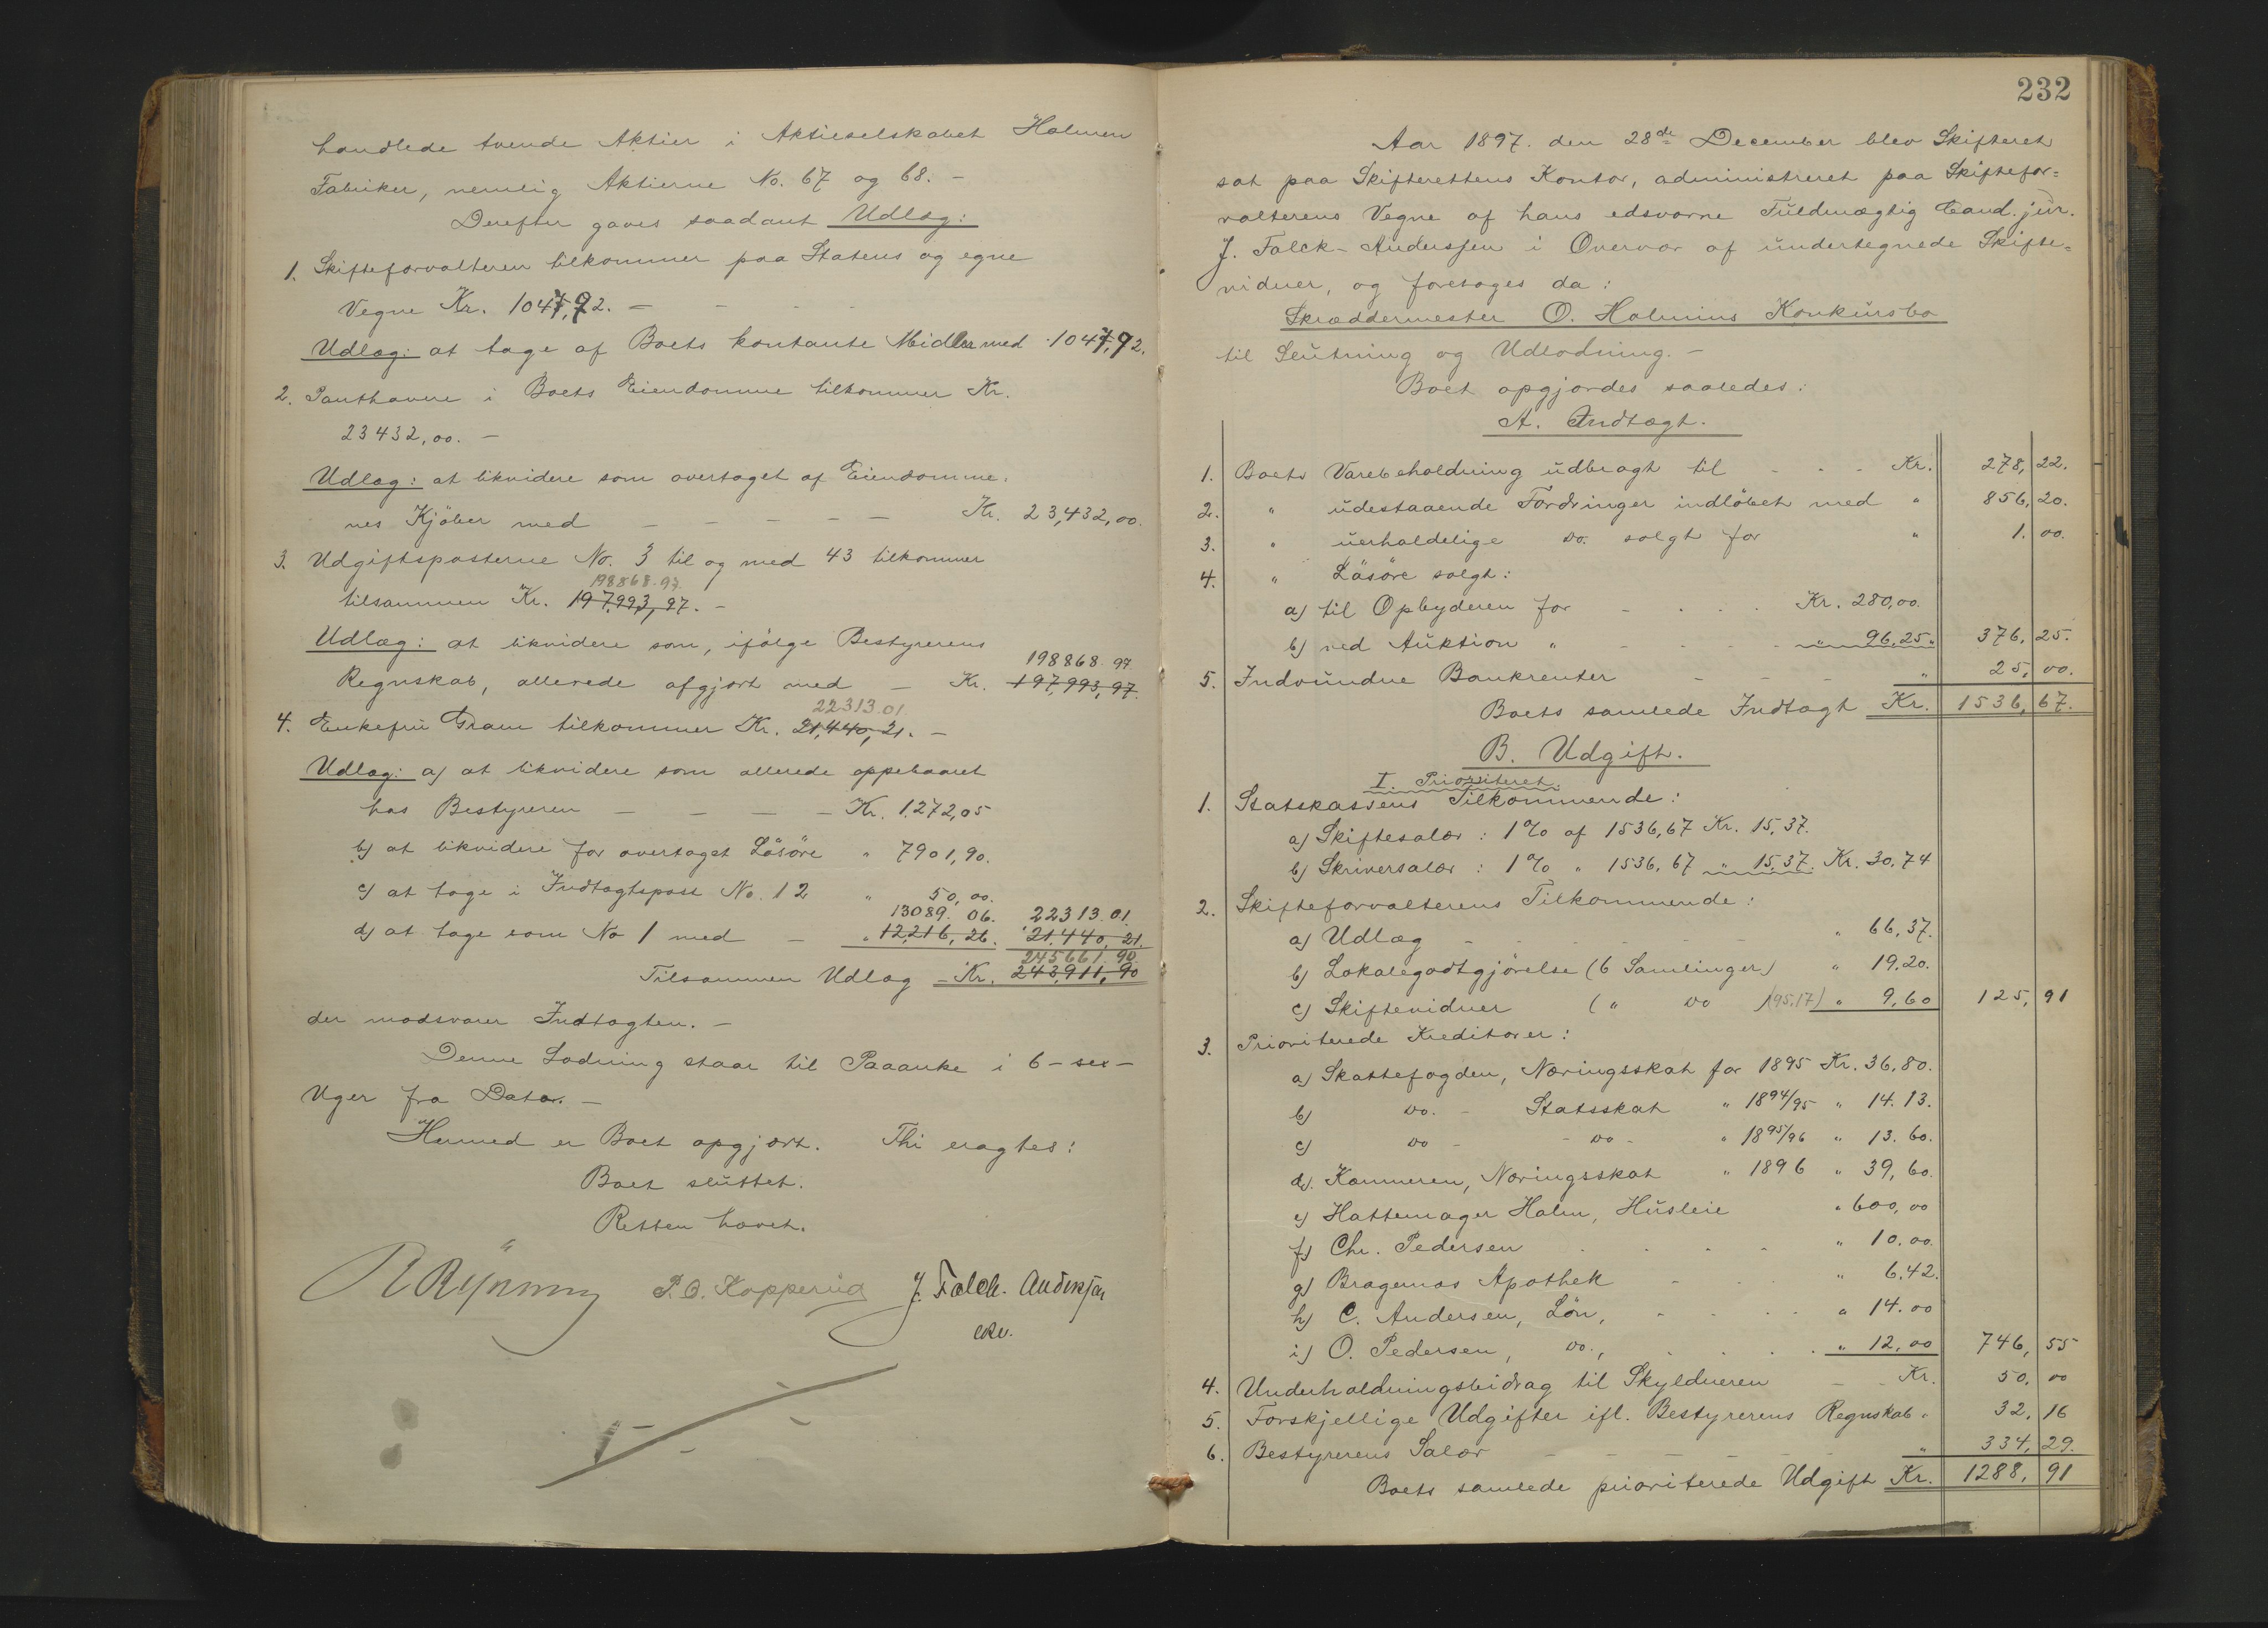 handlede tvende Aktier i Aktieselskabet Holmen
Fabriker, nemlig Aktierne No. 67 og 68. –
Derefter gaves saadant Udlæg:
1. Skifteforvalteren tilkommer paa Statens og egne
Vegne Kr. 1047,92. –
Udlæg: at tage af Boets kontante Midler med 1047,92.
2. Panthavere i Boets Eiendomme tilkommer Kr.
23432,00. –
Udlæg: at likvidere som overtaget af Eiendomme-
nes Kjöber med – – – – – Kr. 23,432,00.
3. Udgiftsposterne No. 3 til og med 43 tilkommer
198868.97
tilsammen Kr. 197,993,97. –
Udlæg: at likvidere som, ifölge Bestyrerens
198868.97
Regnskab, allerede afgjort med – Kr. 197,993,97.
22313.01
4. Enkefru Gram tilkommer Kr. 21,440,21. –
Udlæg: a) at likvidere som allerede oppebaaret
hos Bestyreren – – – – Kr. 1,272,05
b) at likvidere for overtaget Lösöre " 7901,90.
c) at tage i Indtægtspost No. 12 " 50,00.
13089.06. 22313.01
d) at tage som No 1 med – " 12,216,26. 21,440,21.
245661.90
Tilsammen Udlæg – Kr. 243,911,90
der modsvarer Indtægten. –
Denne Lodning staar til Paaanke i 6 – sex –
Uger fra Dato. –
Hermed er Boet opgjort. Thi eragtes:
Boet sluttet.
Retten hævet.
P. O. Kopperud J. Falck-Anderssen
232
Aar 1897. den 28de December blev Skifteret
sat paa Skifterettens Kontor, administreret paa Skiftefor=
valterens Vegne af hans edsvorne Fuldmægtig Cand. jur.
J. Falck-Anderssen i Overvær af undertegnede Skifte=
vidner, og foretoges da:
Skræddermester O. Halmins Konkursbo
til Slutning og Udlodning. –
Boet opgjordes saaledes:
A. Indtægt.
1. Boets Varebeholdning udbragt til - - - Kr. 278,22.
2. " udestaaende Fordringer indlöbet med " 856,20.
3. " uerholdelige do. solgt for " 1.00.
4. " Lösöre solgt:
a) til Opbyderen for - - - - Kr. 280,00.
b) ved Auktion " - - - - " 96,25 " 376,25.
5. Indvundne Bankrenter - - - " 25,00.
Boets samlede Indtægt Kr. 1536,67.
B. Udgift.
I. Prioriteret.
1. Statskassens Tilkommende:
a) Skiftesalær: 1% af 1536,67 Kr. 15,37.
b) Skriversalær: 1% " 1536,67 " 15,37. Kr. 30.74
2. Skifteforvalterens Tilkommende:
a) Udlæg - - - - - - " 66,37.
b) Lokalegodtgjörelse (6 Samlinger) " 19,20.
c) Skiftevidner (" do ) (95,17) " 9,60 125,91
3. Prioriterede Kreditorer:
a) Skattefogden, Næringsskat for 1895 Kr. 36,80.
b) do. - Statsskat " 1894/95 " 14.13.
c) do - - do - " 1895/96 " 13.60.
d) Kæmneren, Næringsskat " 1896 " 39,60.
e) Hattemager Holm, Husleie " 600,00
f) Chr. Pedersen - - - - " 10.00.
g) Bragernæs Apothek - - - " 6.42.
h) C. Andersen, Lön, - - - - " 14.00
i) O. Pedersen, do., - - - - " 12,00 746,55
4. Underholdningsbidrag til Skyldneren – – Kr. 50,00
5. Forskjellige Udgifter ifl. Bestyrerens Regnskab " 32,16
6. Bestyrerens Salær – – – – – " 334,29.
Boets samlede prioriterede Udgift Kr. 1288,91